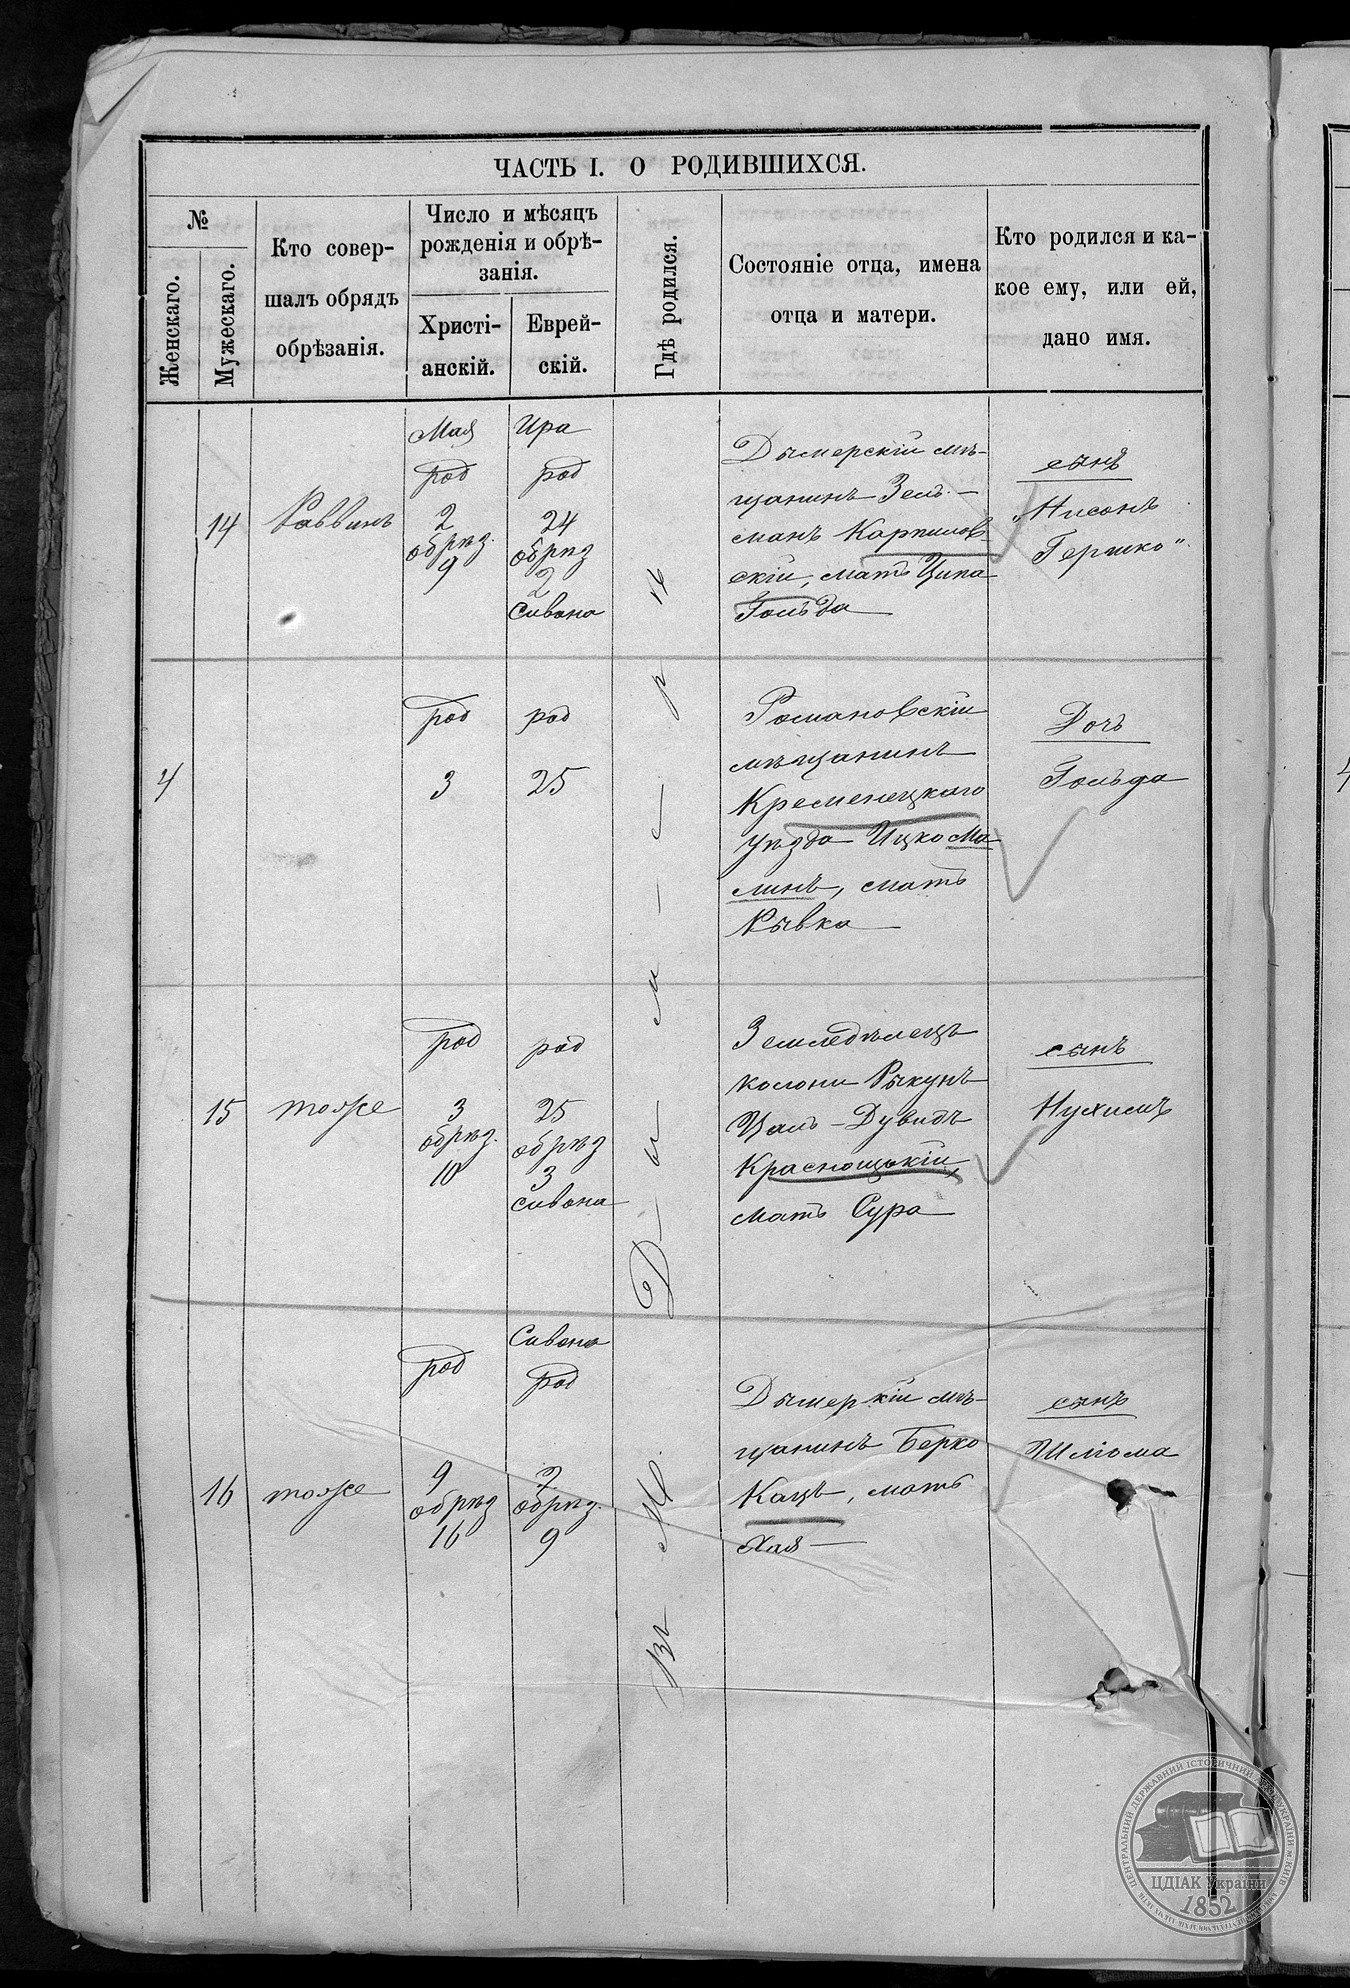 ЧАСТЬ I. О РОДИВШИХСЯ.
№
Женскаго.
Мужескаго.
Кто совер-
шалъ обрядъ
обрѣзанія.
Число и мѣсяцъ
рожденія и обрѣ-
занія.
Христі-
анскій.
Еврей-
скій.
Гдѣ родился.
Состояніе отца, имена
отца и матери.
Кто родился и ка-
кое ему, или ей,
дано имя.
14
Раввинъ
Мая
род
2
обрѣз.
9
Ира
род
24
обрѣз
2
Сивана
Дымерскій мѣ-
щанинъ Зель-
манъ Карпилов-
скій, мать Ципа
Гольда
сынъ
„Нисонъ
Гершко"
4
род
3
род
25
Романовскій
мѣщанинъ
Кременецкаго
уѣзда Ицко Ма
линъ, мать
Рывка
Дочь
Гольда
15
тоже
род
3
обрѣз.
10
род
25
обрѣз
3
Сивана
Земледѣлецъ
колони Рыкунь
Цаль-Дувидъ
Красношъкій,
мать Сура
сынъ
Нухимъ
16
тоже
род
9
обрѣз
16
Сивана
род
2
обрѣз.
9
Дымеркій мѣ-
щанинъ Берко
Кацъ, мать
Хая
сынъ
Шліома
Въ М. Дымерѣ
ЦЕНТРАЛЬНИЙ ДЕРЖАВНИЙ ІСТОРИЧНИЙ АРХІВ УКРАЇНИ м. КИЇВ
ЦДІАК України
1852